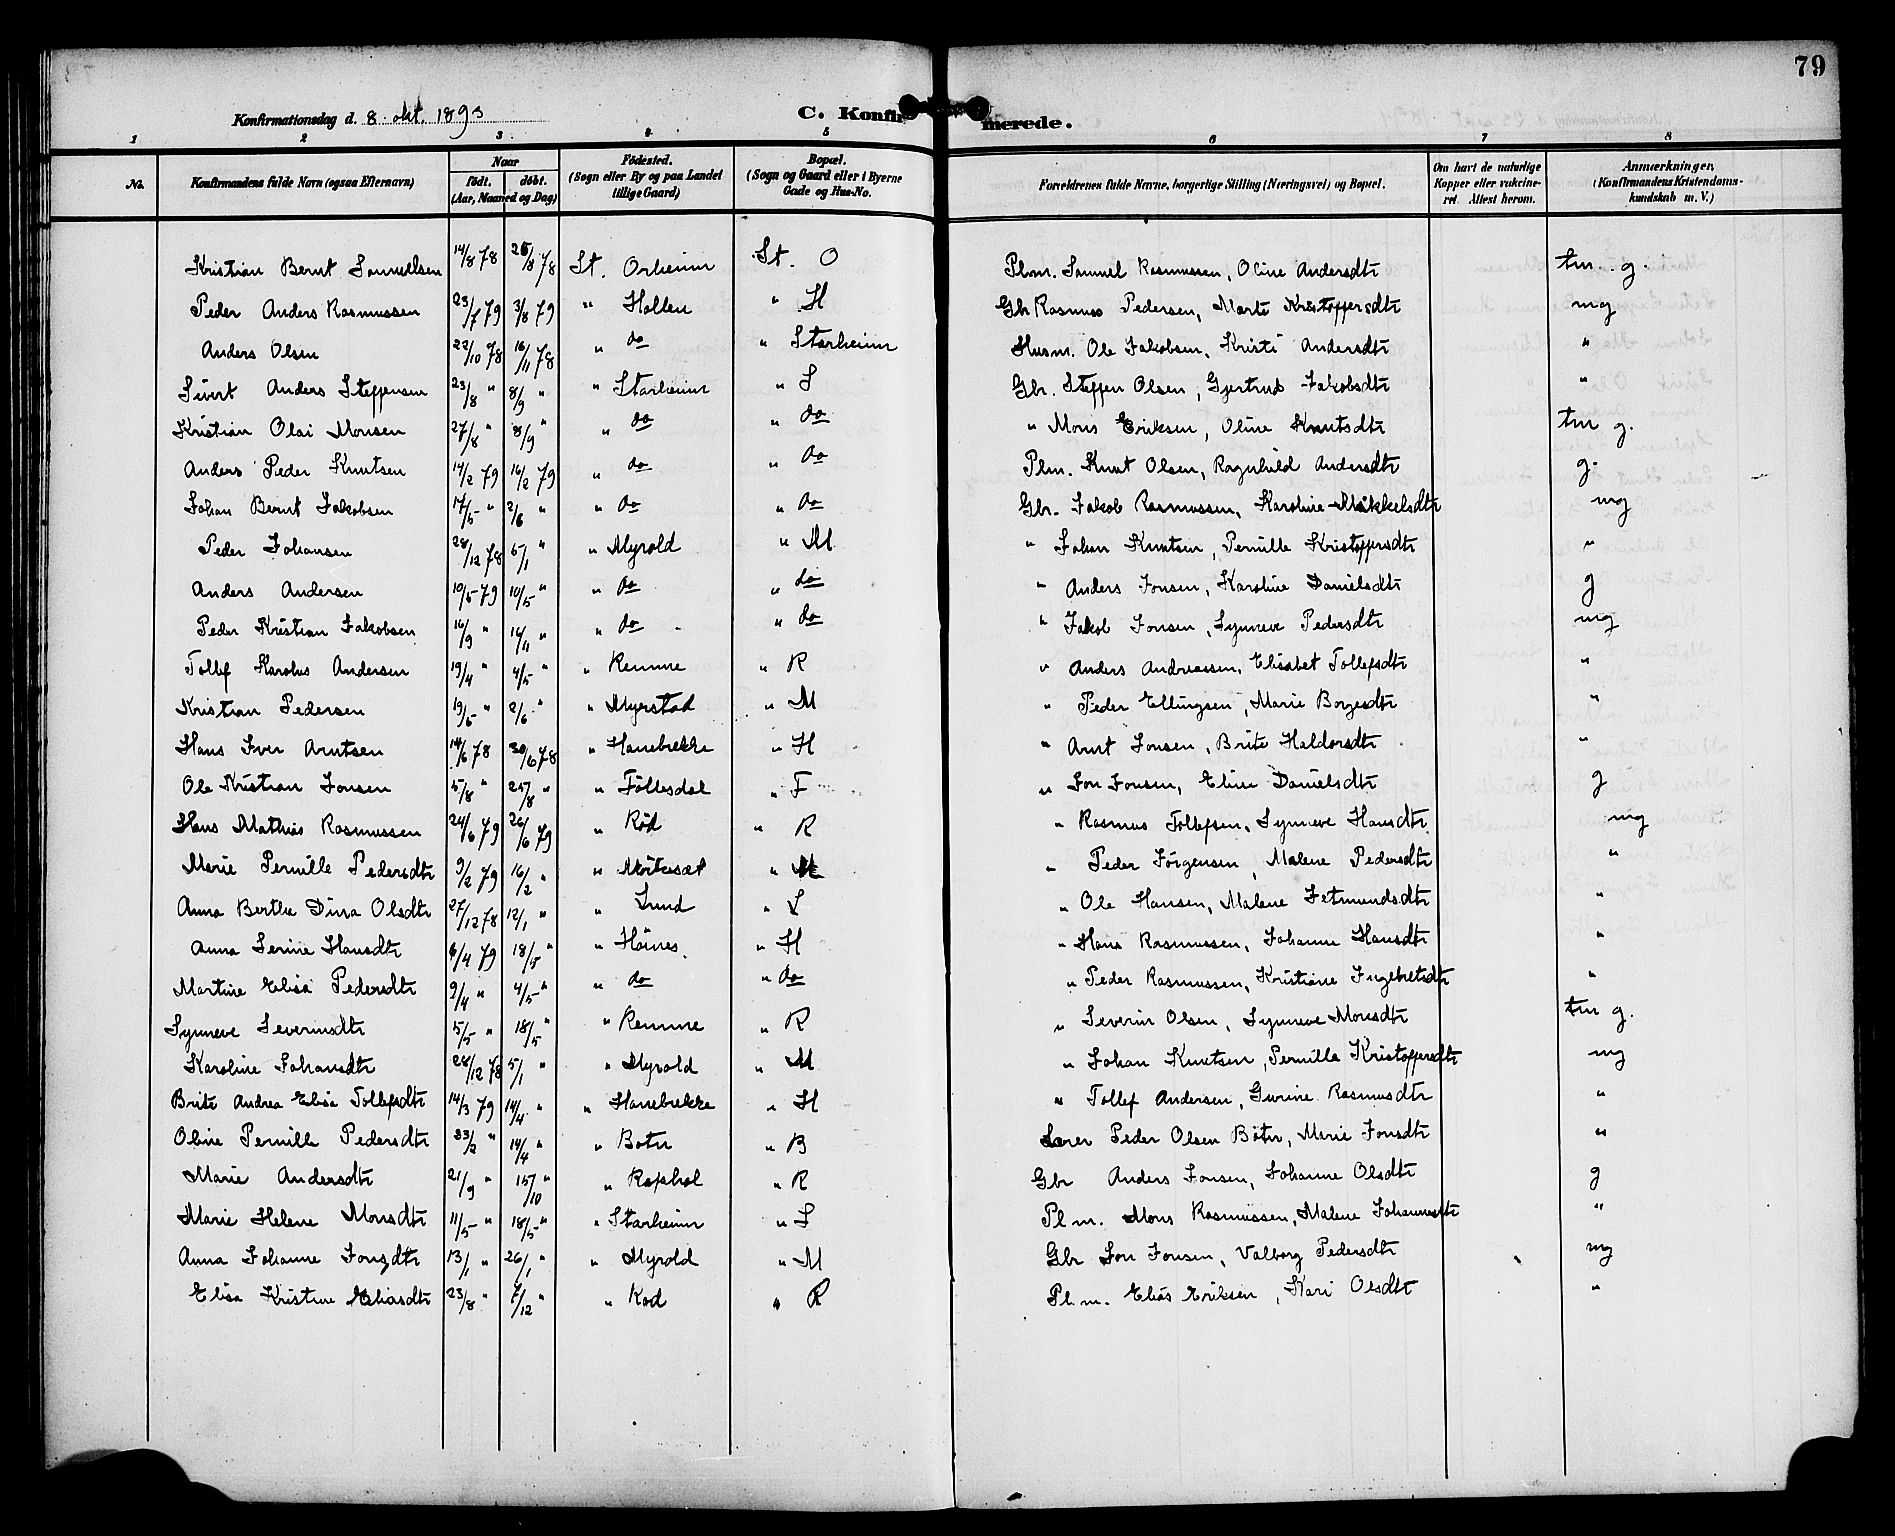 79
Konfirmationsdag d. 8. okt. 1893 C. Konfirmerede.
1 2 3 4 5 6 7 8
No. Konfirmandens fulde Navn (ogsaa Efternavn) Naar født. døbt. (Aar, Maaned og Dag) Fødested. (Sogn eller By og paa Landet tillige Gaard) Bopæl. (Sogn og Gaard eller i Byerne Gade og Hus-No. Forældrenes fulde Navne, borgerlige Stilling (Næringsvei) og Bopæl. Om havt de naturlige Kopper eller vakcineret. Attest herom. Anmærkninger, (Konfirmandens Kristendomskundskab m. V.)
Kristian Bernt Samuelsen 14/8 78 25/8 78 St. Orheim St. O Plm. Samuel Rasmussen, Oline Andersdtr tm. g.
Peder Anders Rasmussen 23/7 79 3/8 79 " Hollen " H Gbr Rasmus Pedersen, Marte Kristoffersdtr mg
Anders Olsen 22/10 78 16/11 78 " do " Starheim Husm. Ole Jakobsen, Kristi Andersdtr "
Sivert Anders Steffensen 23/8 " 8/9 " " Starheim " S Gbr. Steffen Olsen, Gjertrud Jakobsdtr "
Kristian Olai Monsen 27/8 " 8/9 " " do " do " Mons Eriksen, Oline Knutsdtr tm g.
Anders Peder Knutsen 14/2 79 16/2 79 " do " do Plm. Knut Olsen, Ragnhild Andersdtr g.
Johan Bernt Jakobsen 17/5 " 2/6 " " do " do Gbr. Jakob Rasmussen, Karoline Mikkelsdtr mg
Peder Johansen 28/12 78 5/1 " " Myrold " M " Johan Knutsen, Pernille Kristoffersdtr "
Anders Andersen 10/5 79 10/5 " " do " do " Anders Jonsen, Karoline Danielsdtr g
Peder Kristian Jakobsen 16/9 " 14/11 " " do " do " Jakob Jonsen, Synneve Pedersdtr mg
Tollef Karolus Andersen 19/4 " 4/5 " " Remme " R " Anders Andreassen, Elisabet Tollefsdtr "
Kristian Pedersen 19/5 " 2/6 " " Myrstad " M " Peder Ellingsen, Marie Borgesdtr "
Hans Iver Arntsen 14/6 78 30/6 78 " Hanebrekke " H " Arnt Jonsen, Brite Haldorsdtr "
Ole Kristian Jonsen 5/8 " 25/8 " " Föllesdal " F " Jon Jonsen, Eline Danielsdtr g
Hans Mathias Rasmussen 24/6 79 26/6 79 " Rød " R " Rasmus Tollefsen, Synneve Hansdtr mg
Marie Pernille Pedersdtr 9/2 79 16/2 " " " M " Peder Jörgensen, Malene Pedersdtr "
Anna Berthe Dina Olsdtr 27/12 78 12/1 " " Lund " L " Ole Hansen, Malene Jetmundsdtr "
Anna Serine Hansdtr 6/4 79 18/5 " " Höines " H " Hans Rasmussen, Johanne Hansdtr "
Martine Elisa Pedersdtr 9/4 " 4/5 " " do " do " Peder Rasmussen, Kristiane Ingebretsdtr "
Synneve Severinsdtr 5/5 " 18/5 " " Remme " R " Severin Olsen, Synneve Monsdtr tm g.
Karoline Johansdtr 28/12 78 5/1 " " Myrold " M " Johan Knutsen, Pernille Kristoffersdtr mg
Brite Andrea Elisa Tollefsdtr 14/3 79 14/4 " " Hanebrekke " H " Tollef Andersen, Gurine Rasmusdtr "
Oline Pernille Pedersdtr 23/2 " 14/4 " " Botn " B Lærer Peder Olsen Botn, Marie Jonsdtr "
Marie Andersdtr 21/9 " 15/10 " " " R Gbr Anders Jonsen, Johanne Olsdtr g
Marie Helene Monsdtr 11/5 " 18/5 " " Starheim " S Plm. Mons Rasmussen, Malene Johannesdtr "
Anna Johanne Jonsdtr 13/1 " 26/1 " " Myrold " M Gbr Jon Jonsen, Valborg Pedersdtr mg
Elisa Kristine Eliasdtr 23/8 " 7/12 " " Rød " R Plm. Elias Eriksen, Kari Olsdtr "